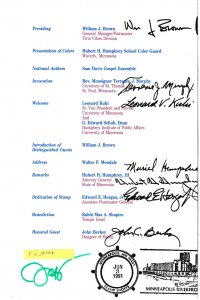 Presiding
William J. Brown
General Manager/Postmaster
Twin Cities Division
Wm J Brown
Presentation of Colors
Hubert H. Humphrey School Color Guard
Waverly, Minnesota
National Anthem
Sam Davis Gospel Ensemble
Invocation
Rev. Monsignor Terrence J. Murphy
University of St. Thomas
St. Paul, Minnesota
Terrence J. Murphy
Welcome
Leonard Kulsi
Sr. Vice President and
University of Minnesota
And
G. Edward Schuh, Dean
Humphrey Institute of Public Affairs
University of Minnesota
Introduction of
Distinguished Guests
William J. Brown
Address
Walter F. Mondale
Muriel Humphrey
Remarks
Hubert H. Humphrey, III
Attorney General
State of Minnesota
Dedication of Stamp
Edward E. Horgan, Jr.
Associate Postmaster General
Benediction
Rabbi Max A. Shapiro
Temple Israel
Honored Guest
John Berkey
Designer of St
John C. Berkey
JUN
3
1991
MINNEAPOLIS